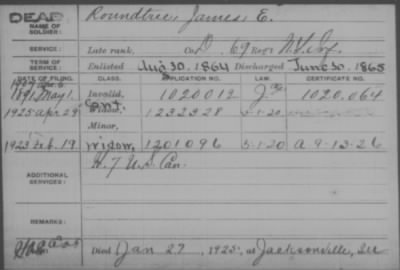 DEAD
NAME OF SOLDIER: Roundtree, James, E.
SERVICE: Late rank, Co. D, 69 Reg't N.Y. Inf.
TERM OF SERVICE: Enlisted Aug 30, 1864 Discharged June 30, 1865
DATE OF FILING. CLASS. APPLICATION NO. LAW. CERTIFICATE NO.
1891 May 1. Invalid, 1020012 1020.064
1925 Apr 29 Cont. Widow, 1232328 5-1-20
Minor,
1923 Feb. 19 Widow, 1201096 5-1-20 A 9-13-26
ADDITIONAL SERVICES: H. 7 U.S. Cav.
REMARKS:
Died Jan 27, 1923, at Jacksonville, Ill